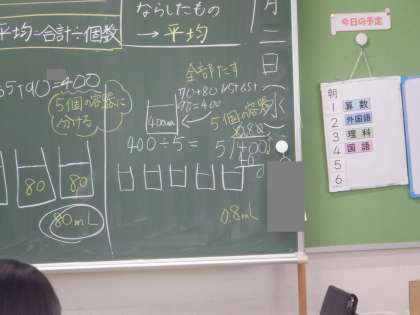 平均=合計÷個数
ならしたもの
→平均
月二日(水
65+90=400
5個の容器に
分ける
全部たす
70+80
70=400
400mL
5個の容器
400÷5=
5)400
40
0
80
80
80mL
0.8mL
今日の予定
朝
1 算数
2 外国語
3 理科
4 国語
5
6